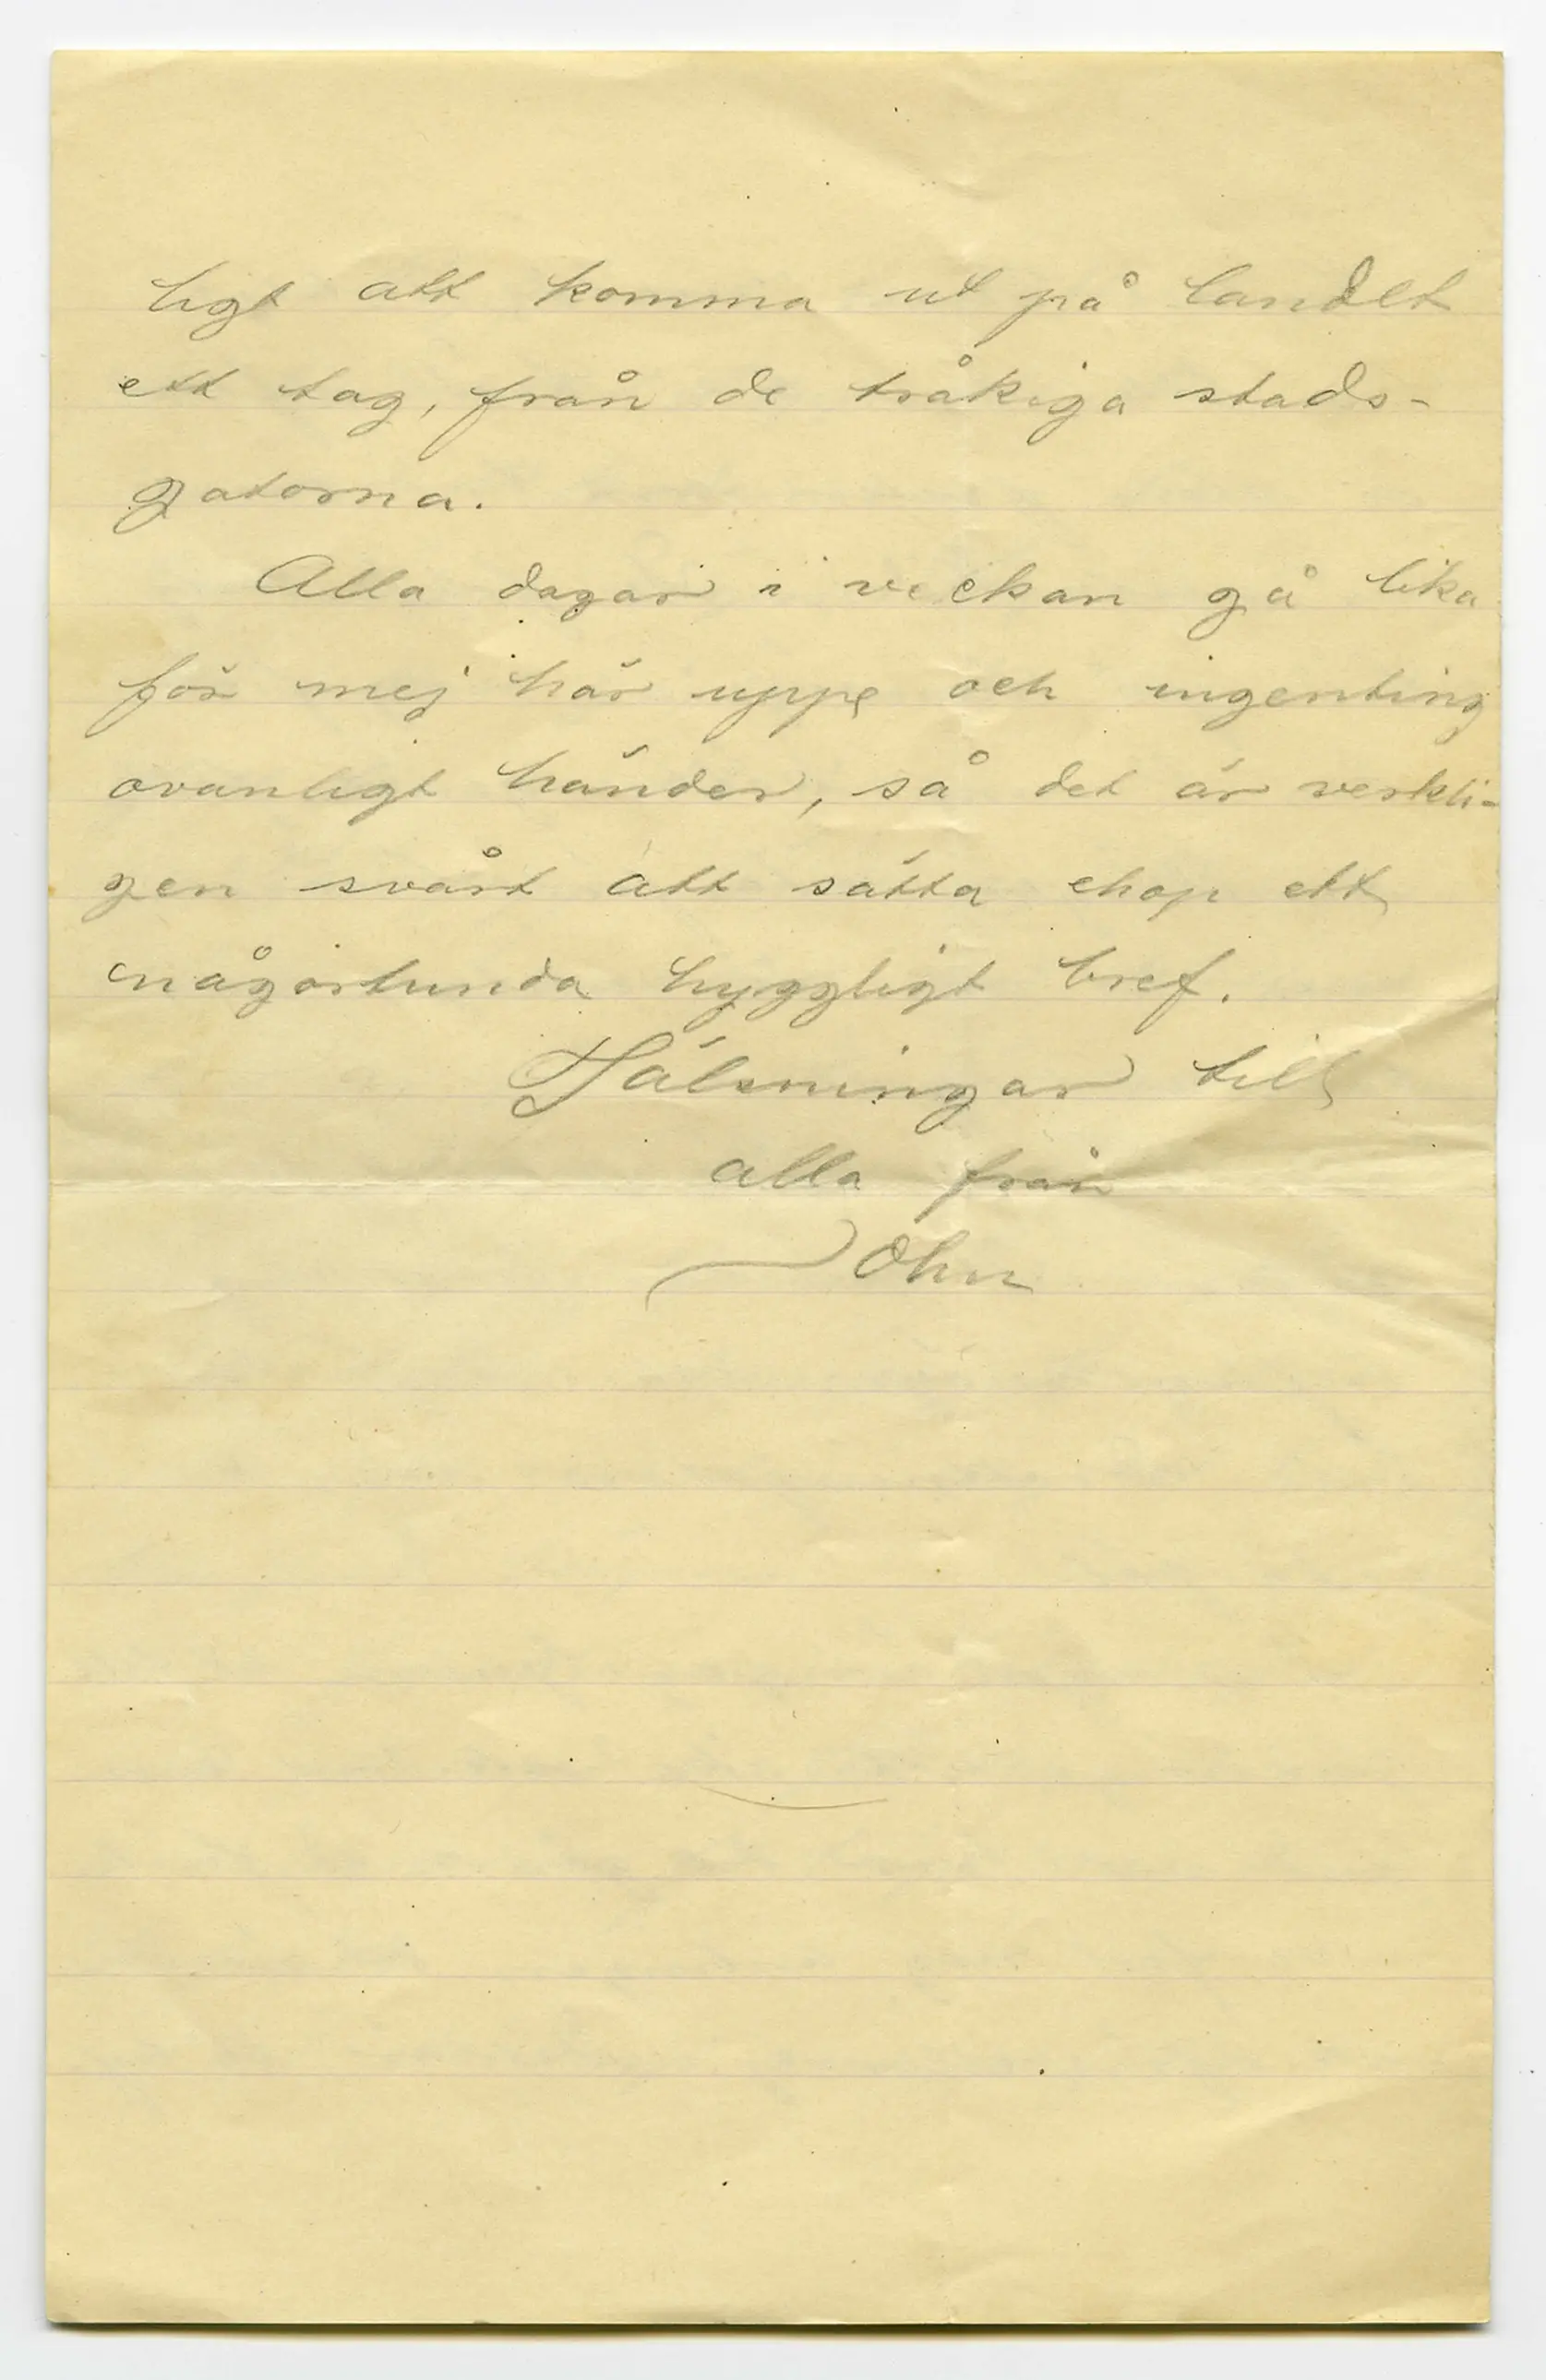 ligt att komma ut på landet
ett tag, från de tråkiga stads-
gatorna.
Alla dagar i veckan gå lika
för mej här uppe och ingenting
ovanligt händer, så det är verkli-
gen svårt att sätta ehop ett
någorlunda hyggligt bref.
Hälsningar till
alla från
John